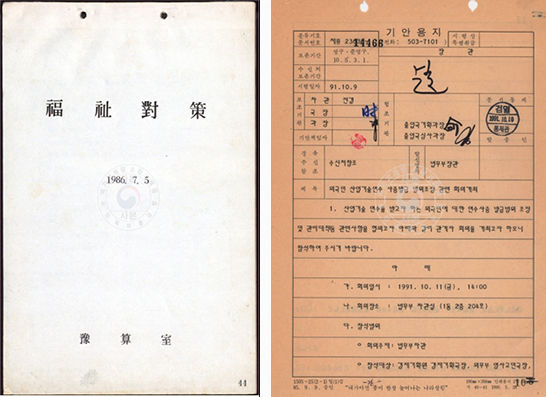 福祉對策
1986. 7. 5
사본
豫算室
44
기안용지
분류기호
문서번호
14468
전화: 503-7101
시행상
특별취급
보존기간
영구·준영구.
10. 5. 3. 1.
장관
수신처
보존기간
시행일자
91.10.9
보조기관
차관
전결
국장
과장
협조기관
출입국기획과장
출입국심사과장
기안책임자
검열
1991. 10. 10
통제관
발송인
경유
수신
참조
수신처참조
발신명의
법무부장관
제목
외국인 산업기술연수 사증발급 범위조정 관련 회의개최
1. 산업기술 연수를 받고자 하는 외국인에 대한 연수사증 발급범위 조정
및 관리대책등 관련사항을 협의코자 아래와 같이 관계자 회의를 개최코자 하오니
참석하여 주시기 바랍니다.
아 래
가. 회의일시 : 1991. 10. 11(금), 14:00
나. 회의장소 : 법무부 차관실 (1동 2층 204호)
다. 참석범위
o 회의주재: 법무부차관
o 참석대상: 경제기획원 경제기획국장, 외무부 영사교민국장,